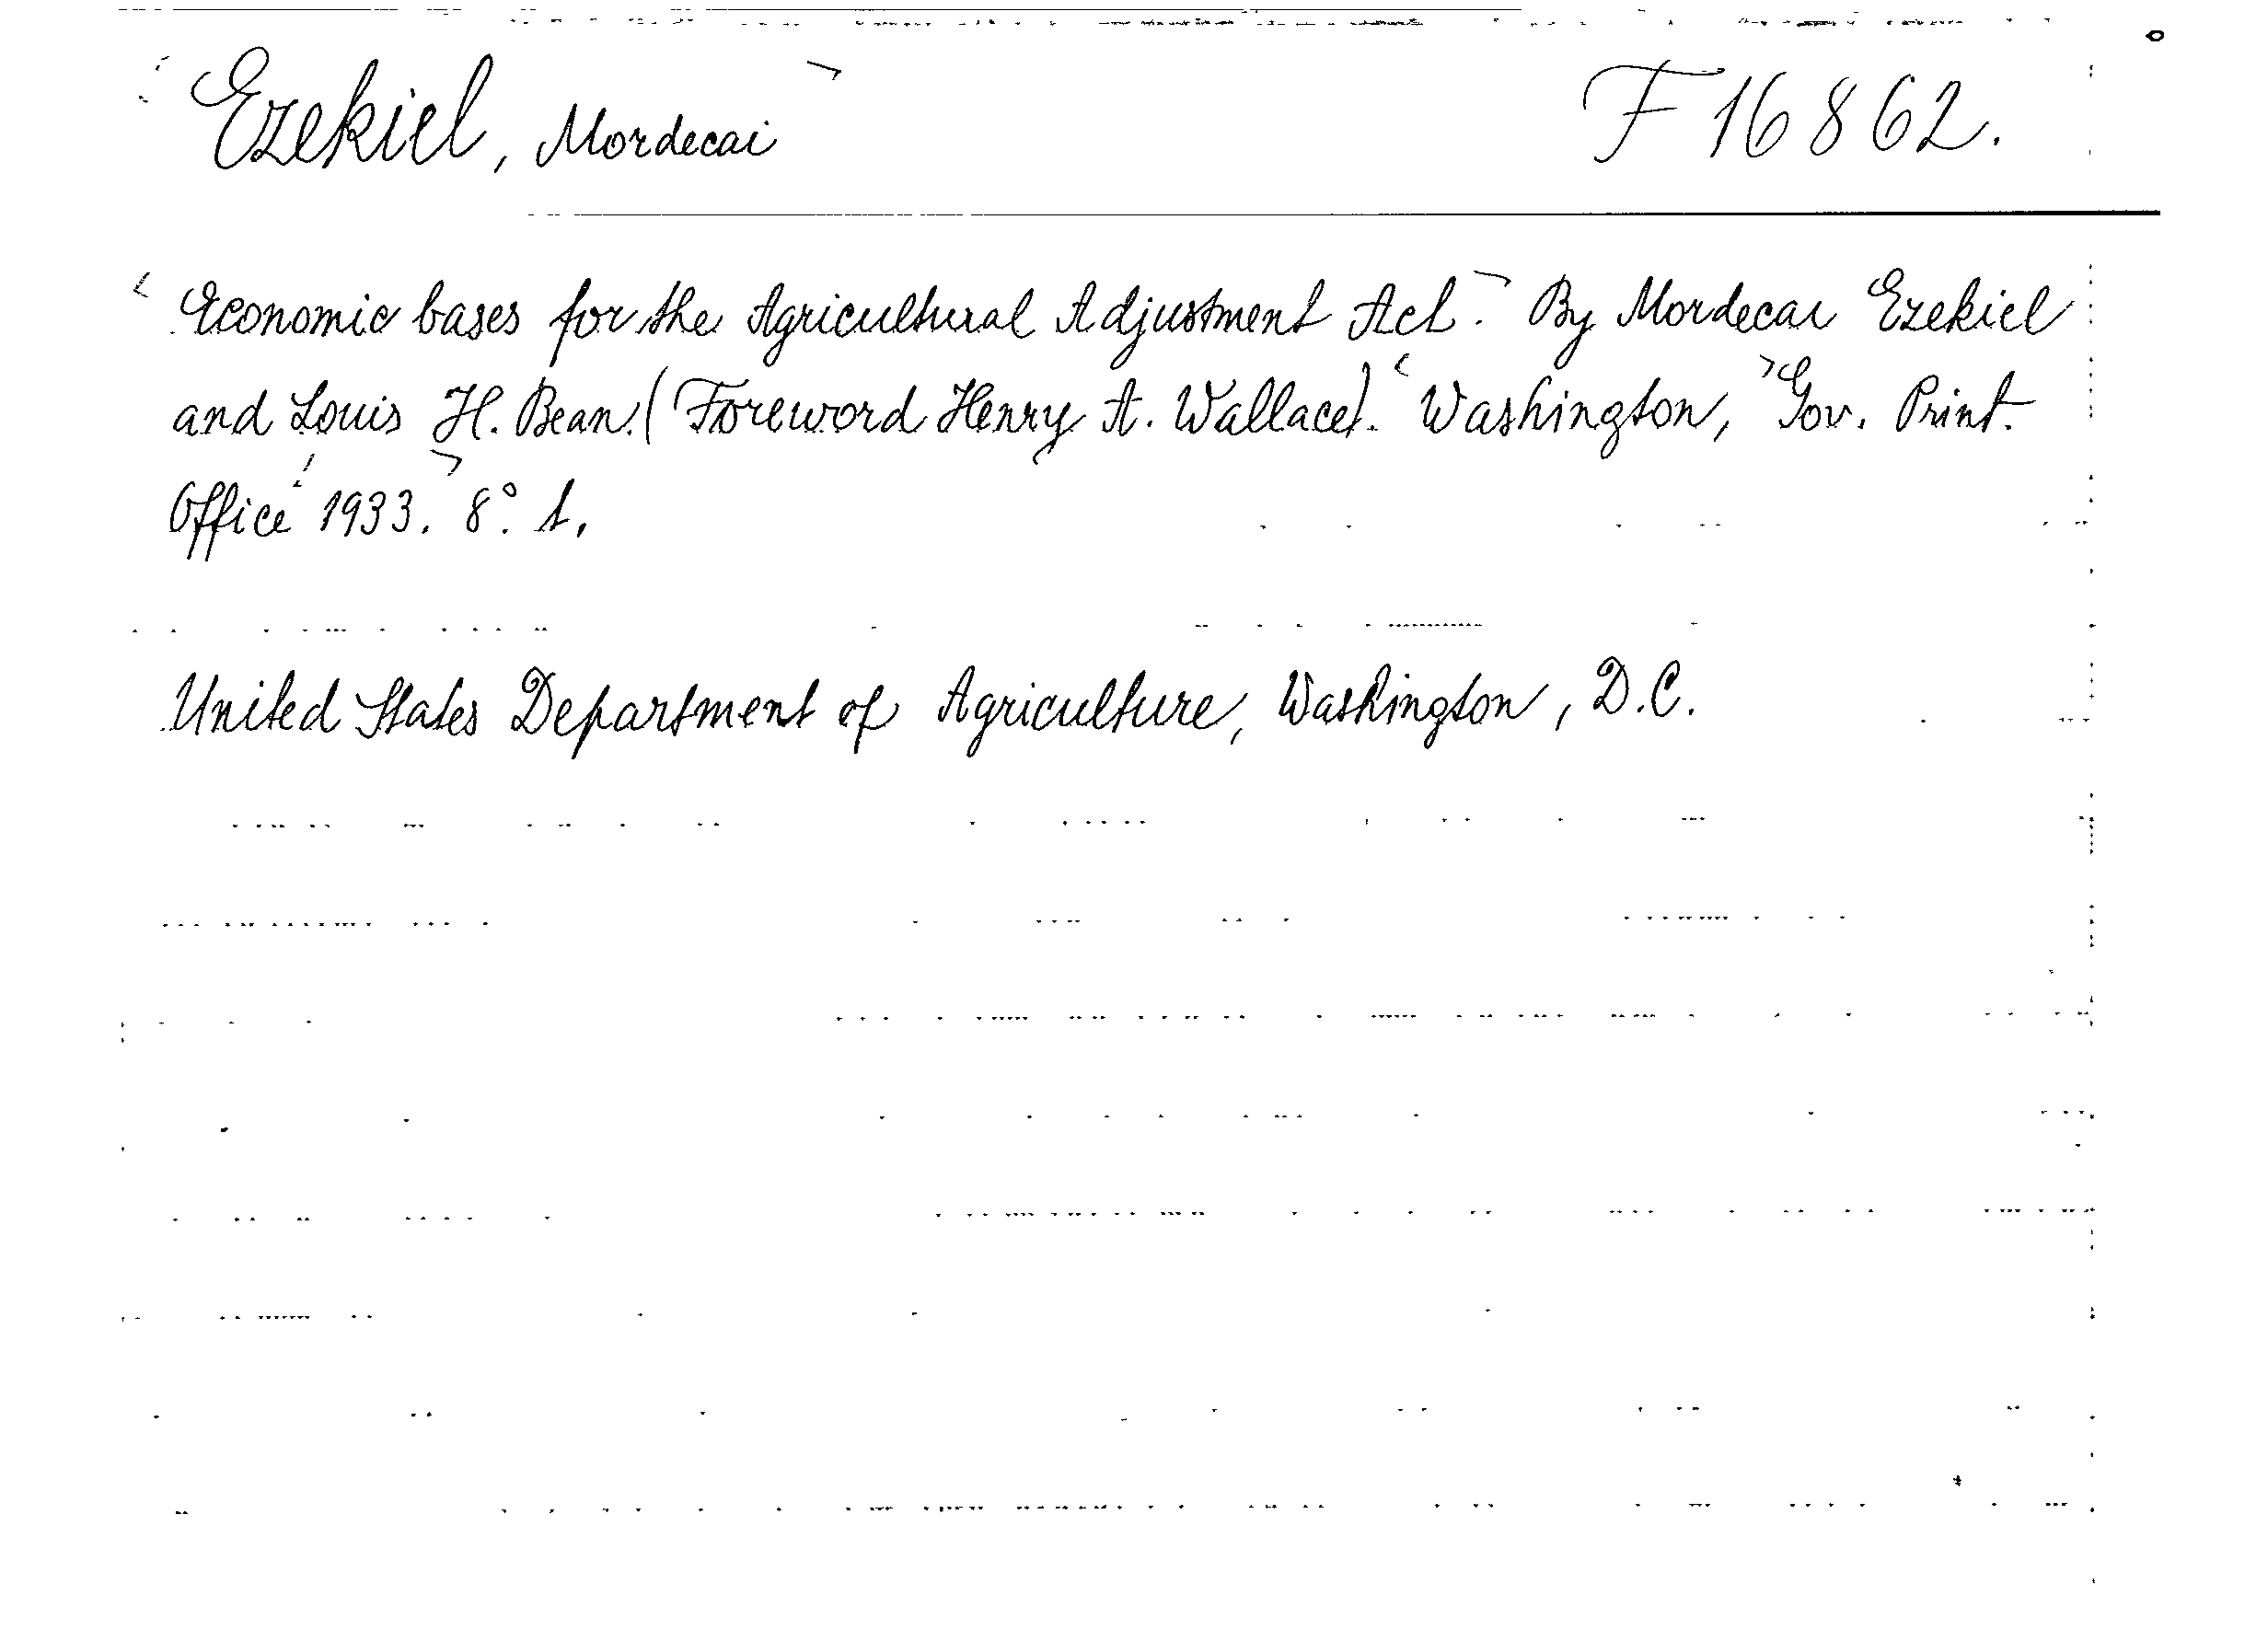 Ezekiel, Mordecai F 16862.
Economic bases for the Agricultural Adjustment Act. By Mordecai Ezekiel
and Louis H. Bean. (Foreword Henry A. Wallace). Washington, Gov. Print.
Office 1933. 8°. 1.
United States Department of Agriculture, Washington, D.C.